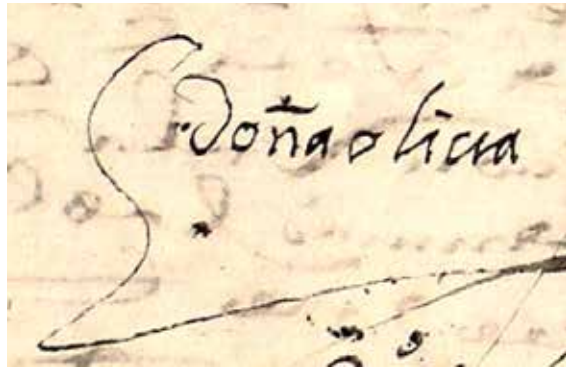 doña oliua